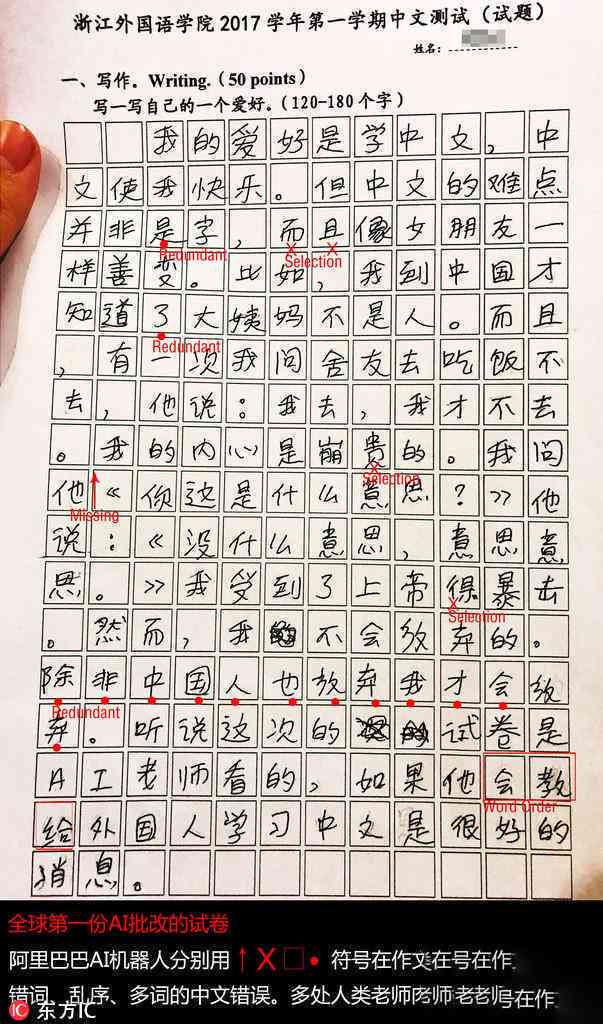 浙江外国语学院2017学年第一学期中文测试（试题）
姓名：
一、写作。Writing.（50 points）
写一写自己的一个爱好。（120-180个字）
我的爱好是学中文，中
文使我快乐。但中文的难点
并非是字，而且像女朋友一
Redundant Selection
样善变。比如，我到中国才
知道了大姨妈不是人。而且
Redundant
，有一次我问舍友去吃饭不
去，他说：我去，我才不去
。我的内心是崩贵的。我问
Selection
他《你这是什么意思？》他
Missing
说：《没什么意思，意思意
思。》我受到了上帝得暴击
Selection
。然而，我不会放弃的。
除非中国人也放弃我才会放
Redundant
弃。听说这次的试卷是
AI老师看的，如果他会教
Word Order
给外国人学习中文是很好的
消息。
全球第一份AI批改的试卷
阿里巴巴AI机器人分别用↑X□• 符号在作文在号在作
错词、乱序、多词的中文错误。多处人类老师老师老师号在作
东方IC